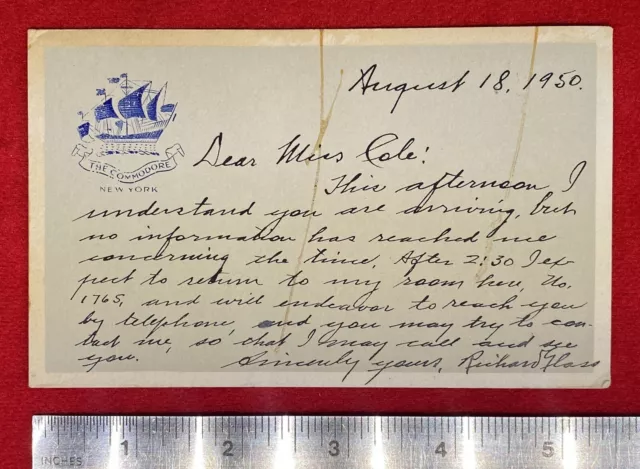 August 18, 1950.
THE COMMODORE
NEW YORK
Dear Miss Cole:
This afternoon I
understand you are arriving, but
no information has reached me
concerning the time. After 2:30 I ex-
pect to return to my room here, No.
1765, and will endeavor to reach you
by telephone, and you may try to con-
tact me, so that I may call and see
you.
Sincerely yours, Richard Glass
INCHES 1 2 3 4 5